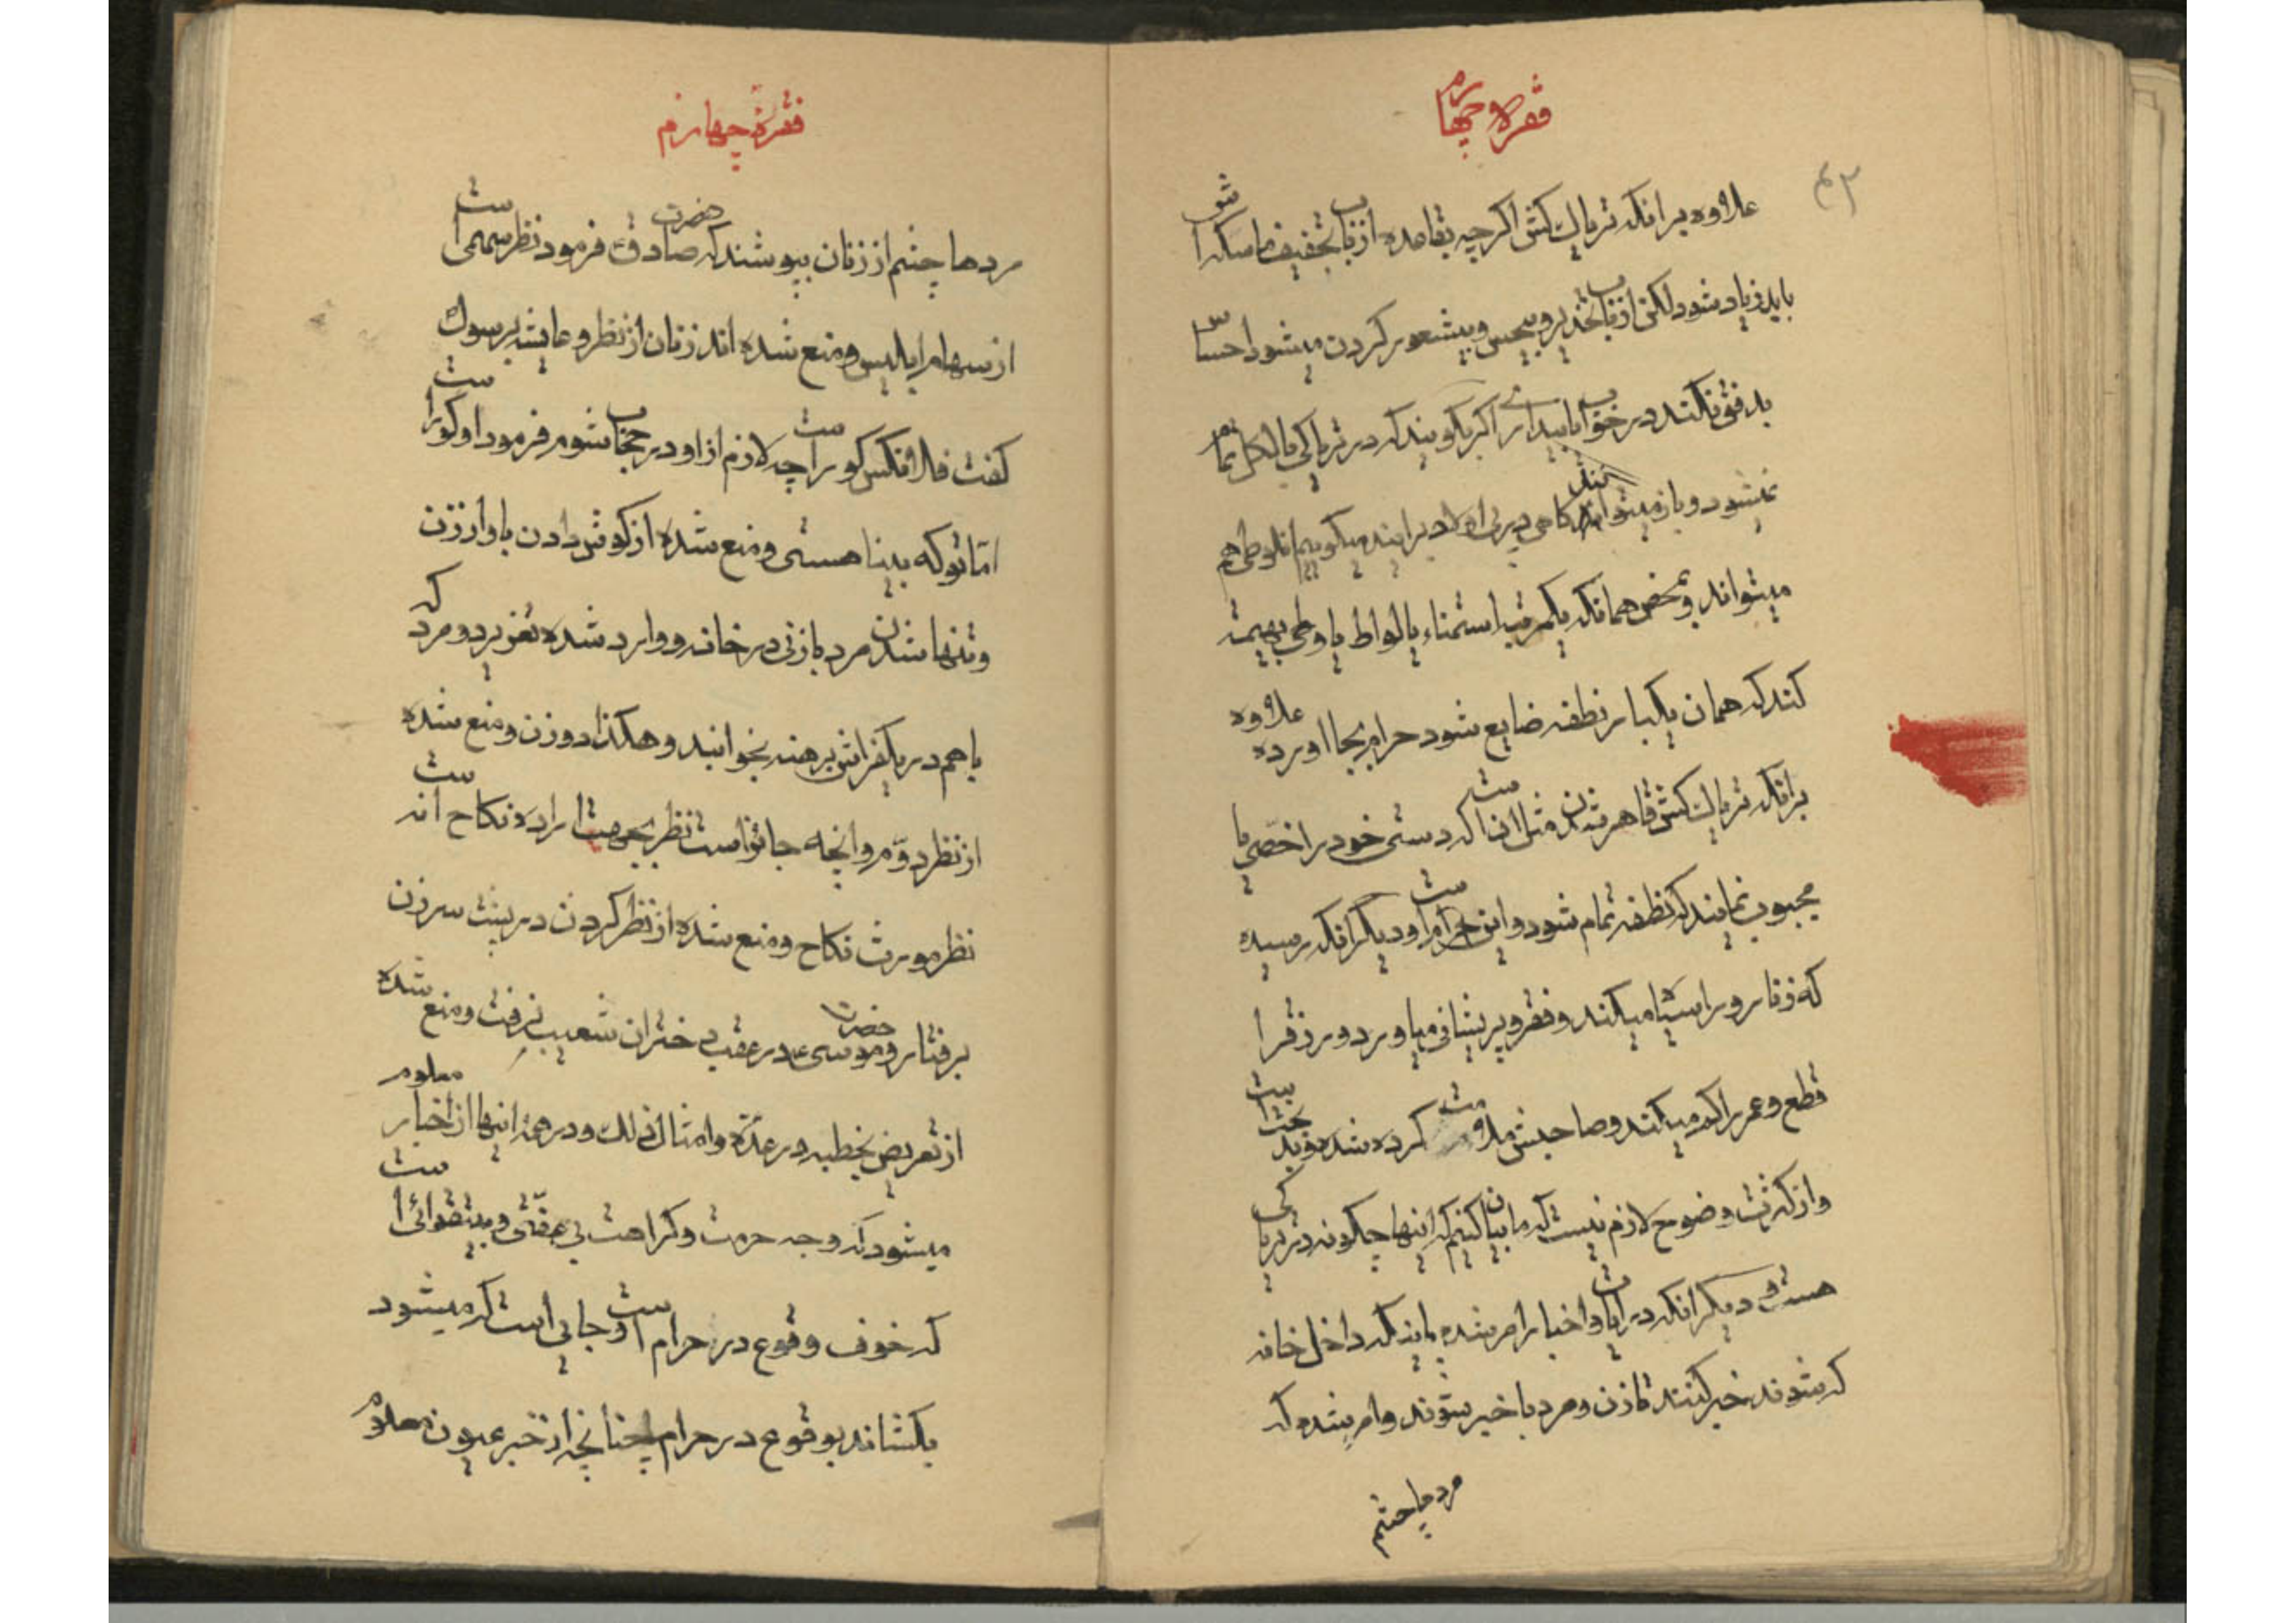 فقره چهارم
۴۲
علاوه برانکه تریاك کش اکرچه بقاعده ازباب تخفیف ماسکه شق
باید زیاد شود لکن ازباب تخذیر و بیحس و بیشعور کردن میشود احساس
بدفق نکند در خواب یا بیداری اکر بکویند که در تریاکی بالکل تمام
نمیشود و باز میتوانند کاهی دیر بی اولاد برایند میکویم انلوطی هم
میتواند و بمحض همانکه یکمرتبه استمناء یا لواط یا وطی بهیمه
کند که همان یکبار نطفه ضایع شود حرام بجا اورده علاوه
برانکه تریاك کش قاهر شدن مثل انست که دستی خود را خصی یا
مجبوب نمایند که نطفه تمام شود و این حرامست و دیکر انکه رسیده
که زنا رو را سیاه میکند و فقر و پریشانی میاورد و رزق را
قطع و عمر را کم میکند و صاحبش مذمت کرده شده و بدبخت
و از کثرت وضوح لازم نیست که ما بیان کنیم که اینها چکونه در تریاکی
هست و دیکر انکه در ایات و اخبار امر شده بایند که داخل خانه
که شوند خبر کنند تا زن و مرد با خبر شوند و امر شده که
مردها چشم
فقرهٔ چهارم
مردها چشم از زنان بپوشند که حضرت صادق فرمود نظر سهمی است
از سهام ابلیس و منع شده اند زنان از نظر و عایشه برسول
کفت فلانکس کور است چه لازم از او در حجاب شوم فرمود او کور است
امّا تو که بینا هستی و منع شده از کوش دادن باواز زن
و تنها شدن مرد با زنی در خانه و وارد شده تعزیر دو مرد که
با هم در یکفراش برهنه بخوابند و هکذا دو زن و منع شده
از نظر دوّم و انچه جائز است نظر بجهت اراده نکاح است انه
نظر مورث نکاح و منع شده از نظر کردن در پشت سر زن
برفتار و حضرت موسی ع در عقب دختران شعیب نرفت و منع شده
از تعریض بخطبه در عدّه و امثال ذلك و در همهٔ اینها از اخبار معلوم
میشود که وجه حرمت و کراهت بی عفتی و بیتقوائی است
که خوف وقوع در حرام است و جائی است که میشود
بکشاند بوقوع در حرام چنانچه از خبر عیون معلوم